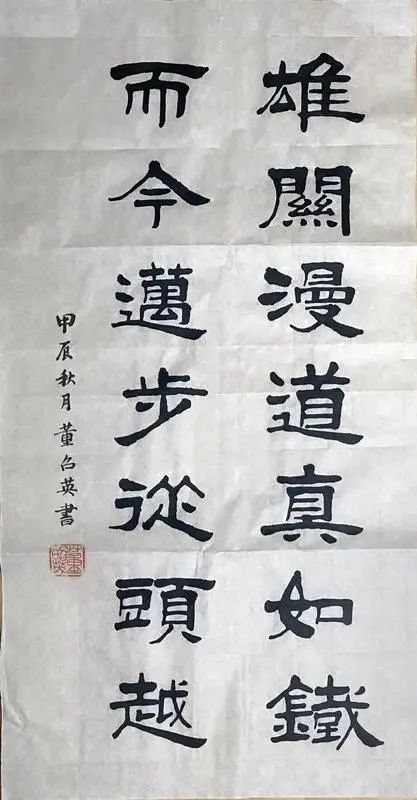 雄關漫道真如鐵
而今邁步從頭越
甲辰秋月董召英書